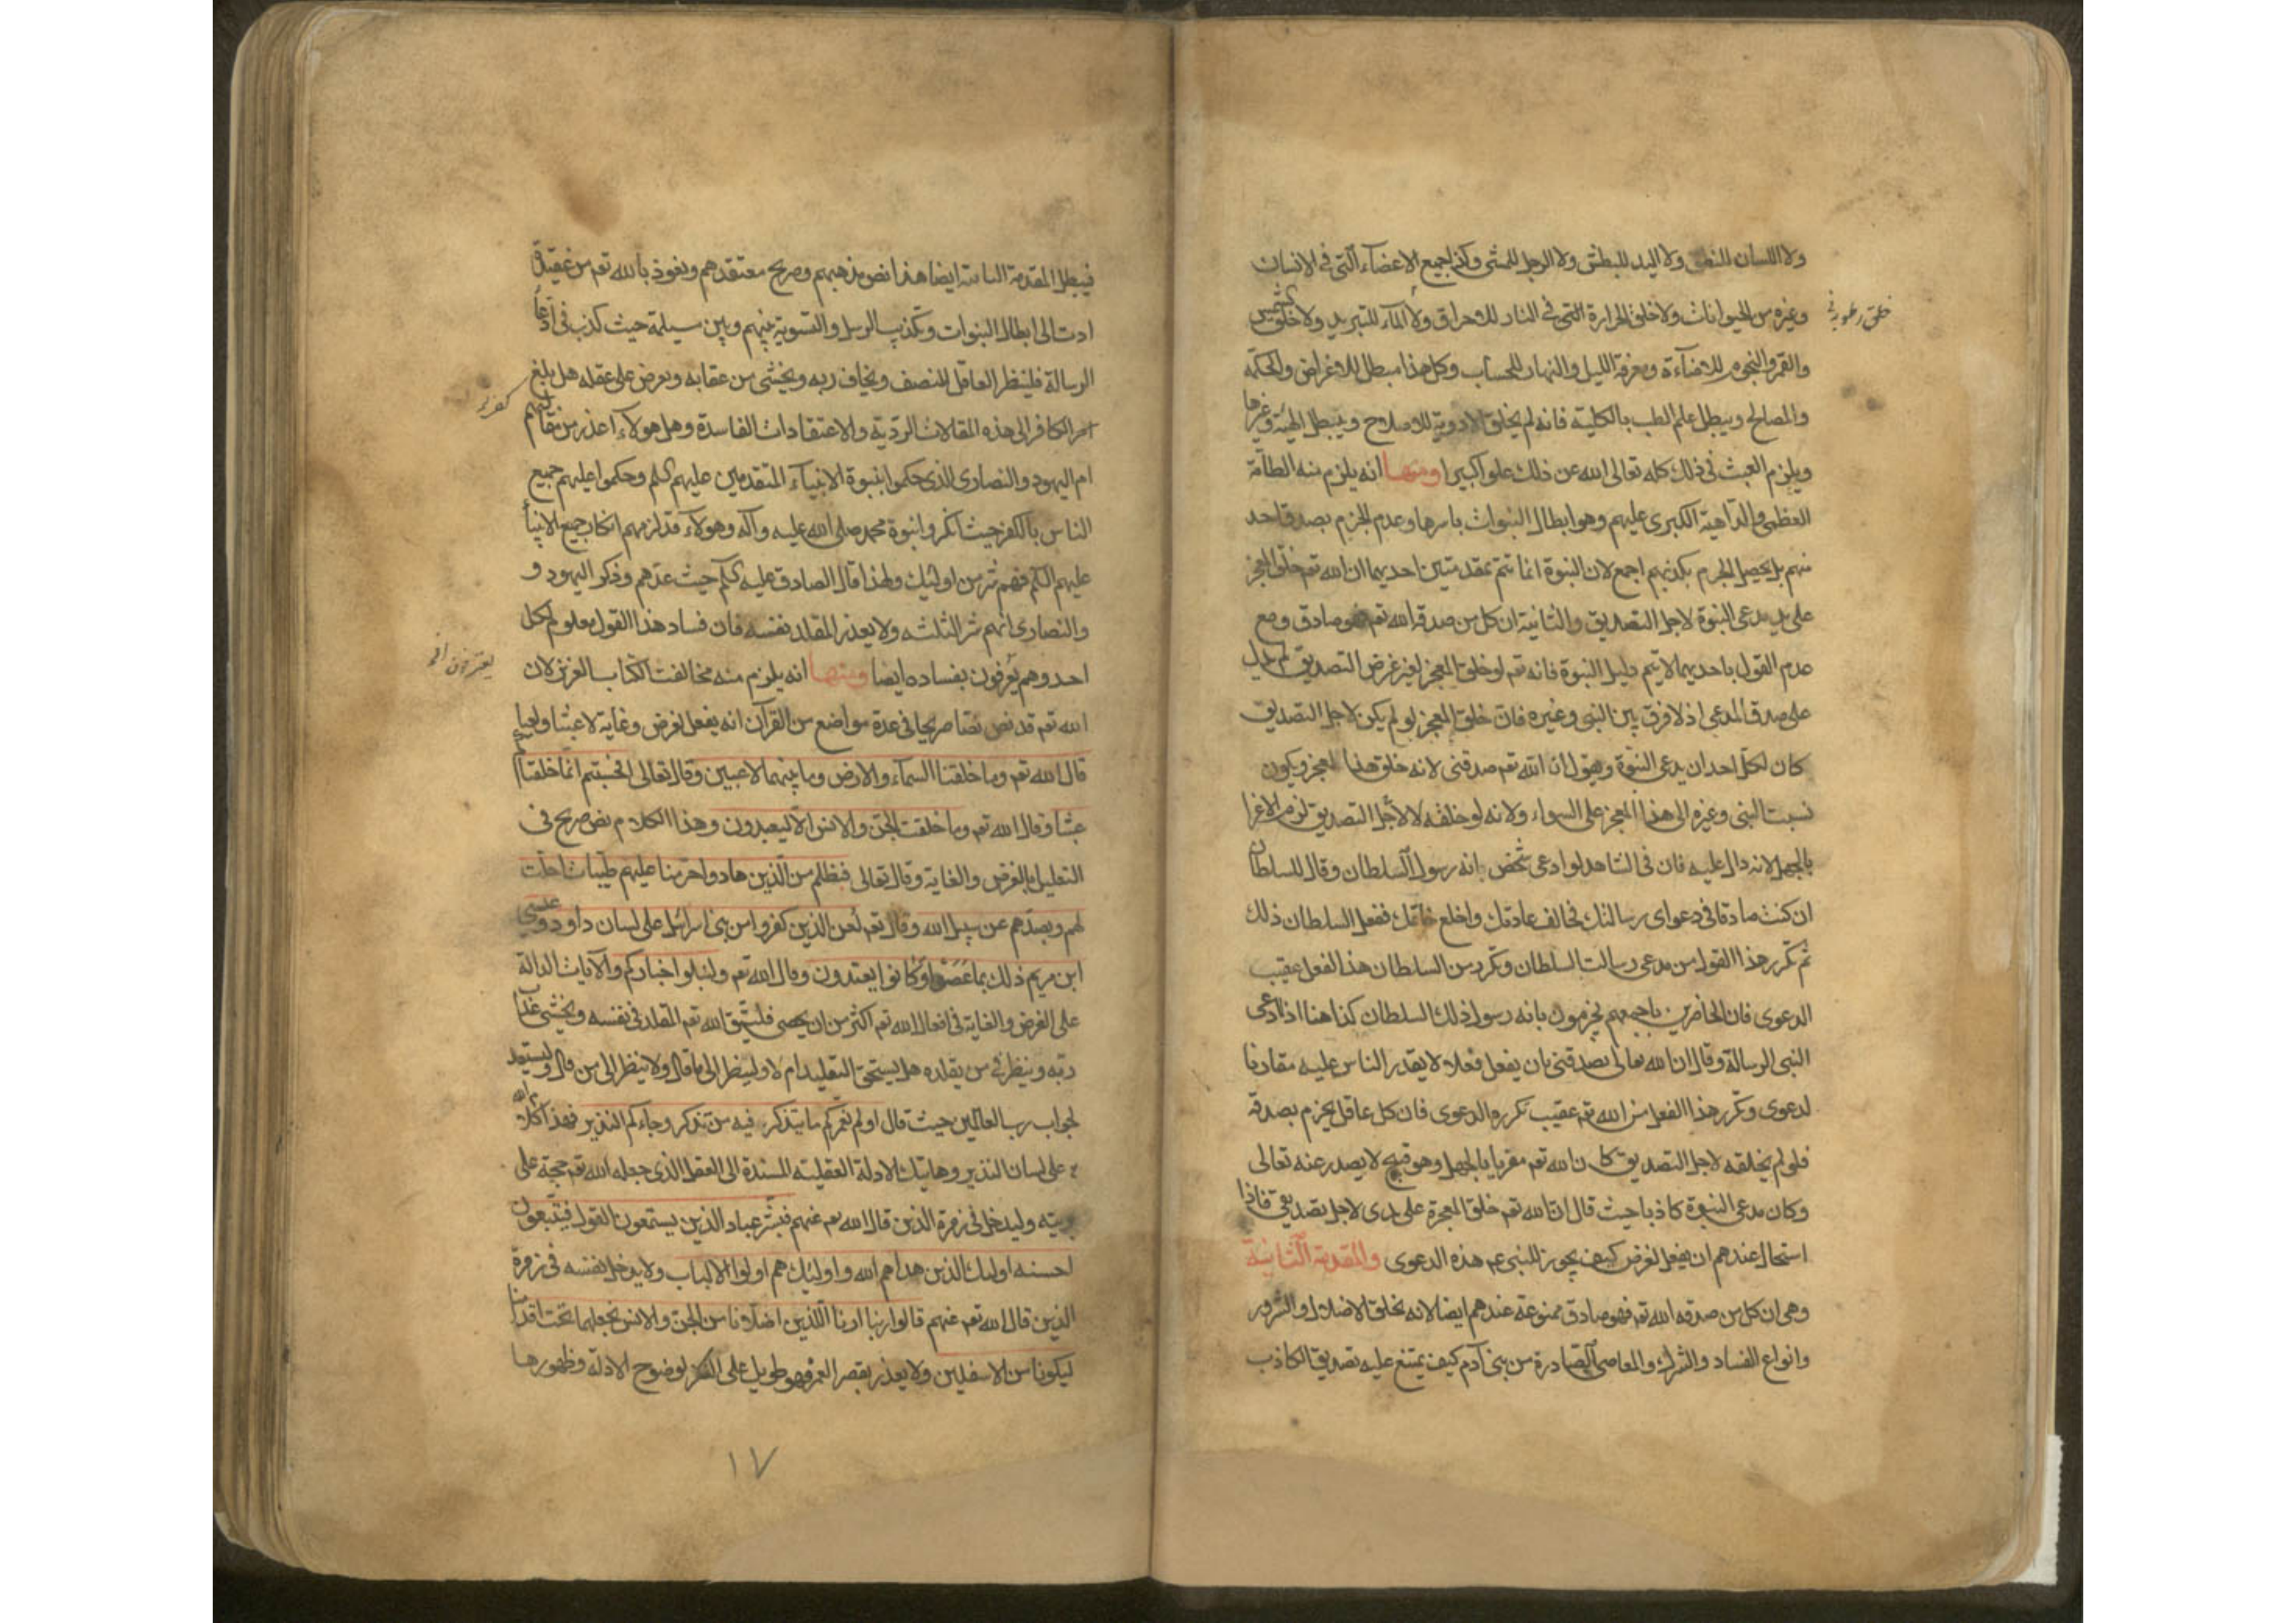 ولا اللسان للنطق ولا اليد للبطش ولا الرجل للمشى وكذا جميع الاعضاء التى فى الانسان
وغيره من الحيوانات ولا خلق الحرارة التى فى النار للاحراق ولا الماء للتبريد ولا خلق الشمس
والقمر والنجوم للاضاءة ومعرفة الليل والنهار للحساب وكل هذا مبطل للاغراض والحكمة
والمصالح ويبطل علم الطب بالكلية فانه لم يخلق الادوية للاصلاح ويبطل الهيئة وغيرها
ويلزم العبث فى ذلك كله تعالى الله عن ذلك علوا كبيرا ومنها انه يلزم منه الطامة
العظمى والداهية الكبرى عليهم وهو ابطال النبوات باسرها وعدم الجزم بصدق احد
منهم بل يحصل الجزم بكذبهم اجمع لان النبوة انما تتم بمقدمتين احديهما ان الله تعم خلق المعجز
على يد مدعى النبوة لاجل التصديق والثانية ان كل من صدقه الله تعم فهو صادق ومع
عدم القول باحديهما لا يتم دليل النبوة فانه تعم لو خلق المعجز لغير غرض التصديق لم يدل
على صدق المدعى اذ لا فرق بين النبى وغيره فان خلق المعجز لو لم يكن لاجل التصديق
كان لكل احد ان يدعى النبوة ويقول ان الله تعم صدقنى لانه خلق هذا المعجز ويكون
نسبت النبى وغيره الى هذا المعجز على السواء ولانه لو خلقه لا لاجل التصديق لزم الاغرا
بالجهل لانه دال عليه فان فى الشاهد لو ادعى شخص انه رسول السلطان وقال للسلطان
ان كنت صادقا فى دعواى رسالتك فخالف عادتك واخلع خاتمك ففعل السلطان ذلك
ثم تكرر هذا القول من مدعى رسالت السلطان وتكرر من السلطان هذا الفعل عقيب
الدعوى فان الحاضرين باجمعهم يجزمون بانه رسول ذلك السلطان كذا هنا اذا ادعى
النبى الرسالة وقال ان الله تعالى يصدقنى بان يفعل فعلا لا يقدر الناس عليه مقارنا
لدعوى وتكرر هذا الفعل من الله تعم عقيب تكرره الدعوى فان كل عاقل يجزم بصدقه
فلو لم يخلقه لاجل التصديق كان الله تعم مغريا بالجهل وهو قبيح لا يصدر عنه تعالى
وكان مدعى النبوة كاذبا حيث قال ان الله تعم خلق المعجزة على يدى لاجل تصديقى فاذا
استحال عندهم ان يفعل لغرض كيف يجوز للنبى عم هذه الدعوى والمقدمة الثانية
وهى ان كل من صدقه الله تعم فهو صادق ممنوعة عندهم ايضا لانه يخلق الاضلال والشرور
وانواع الفساد والشرك والمعاصى الصادرة من بنى آدم كيف يمتنع عليه تصديق الكاذب
فيبطل المقدمة الثانية ايضا هذا نص مذهبهم وصريح معتقدهم ونعوذ بالله تعم من عقيدة
ادت الى ابطال النبوات وتكذيب الرسل والتسوية بينهم وبين مسيلمة حيث كذب فى ادعا
الرسالة فلينظر العاقل المنصف ويخاف ربه ويخشى من عقابه ويعرض على عقله هل بلغ
كفر
امر الكافر الى هذه المقالات الردية والاعتقادات الفاسدة وهل هولاء اعذر من مقالتهم
ام اليهود والنصارى الذى حكموا بنبوة الانبياء المتقدمين عليهم السلم وحكموا عليهم جميع
الناس بالكفر حيث انكروا نبوة محمد صلى الله عليه وآله وهولاء قد لزمهم انكار جميع الانبيا
عليهم السلم فهم شر من اولئك ولهذا قال الصادق عليه السلم حيث عدهم وذكر اليهود و
والنصارى انهم شر الثلثه ولا يعذر المقلد نفسه فان فساد هذا القول معلوم لكل
احد وهم يعرفون بفساده ايضا ومنها انه يلزم منه مخالفت الكتاب العزيز لان
الله تعم قد نص نصا صريحا فى عدة مواضع من القرآن انه يفعل لغرض وغاية لا عبثا ولعبا
قال الله تعم وما خلقنا السماء والارض وما بينهما لاعبين وقال تعالى افحسبتم انما خلقناكم
عبثا وقال الله تعم وما خلقت الجن والانس الا ليعبدون وهذا الكلام نص صريح فى
التعليل بالغرض والغاية وقال تعالى فبظلم من الذين هادوا حرمنا عليهم طيبات احلت
لهم وبصدهم عن سبيل الله وقال تعم لعن الذين كفروا من بنى اسرائل على لسان داود وعيسى
ابن مريم ذلك بما عصوا وكانوا يعتدون وقال الله تعم ولنبلو اخباركم والآيات الدالة
على الغرض والغاية فى افعال الله تعم اكثر من ان يحصى فليتق الله تعم المقلد فى نفسه ويخشى عذاب
ربه وينظر فى من يقلده هل يستحق التقليد ام لا ولينظر الى ما قال ولا ينظر الى من قال وليستعد
لجواب رب العالمين حيث قال اولم نعمركم ما يتذكر فيه من تذكر وجاءكم النذير فهذا كلام الله
على لسان النذير وهاتيك الادلة العقلية المستندة الى العقل الذى جعله الله تعم حجة على
بريته وليدخل فى زمرة الذين قال الله تعم عنهم فبشر عباد الذين يستمعون القول فيتبعون
احسنه اولئك الذين هداهم الله واولئك هم اولوا الالباب ولا يدخل نفسه فى زمرة
الذين قال الله تعم عنهم قالوا ربنا ارنا اللذين اضلانا من الجن والانس نجعلهما تحت اقدامنا
ليكونا من الاسفلين ولا يعذر بقصر العمر فهو طويل على الفكر لوضوح الادلة وظهورها
١٧